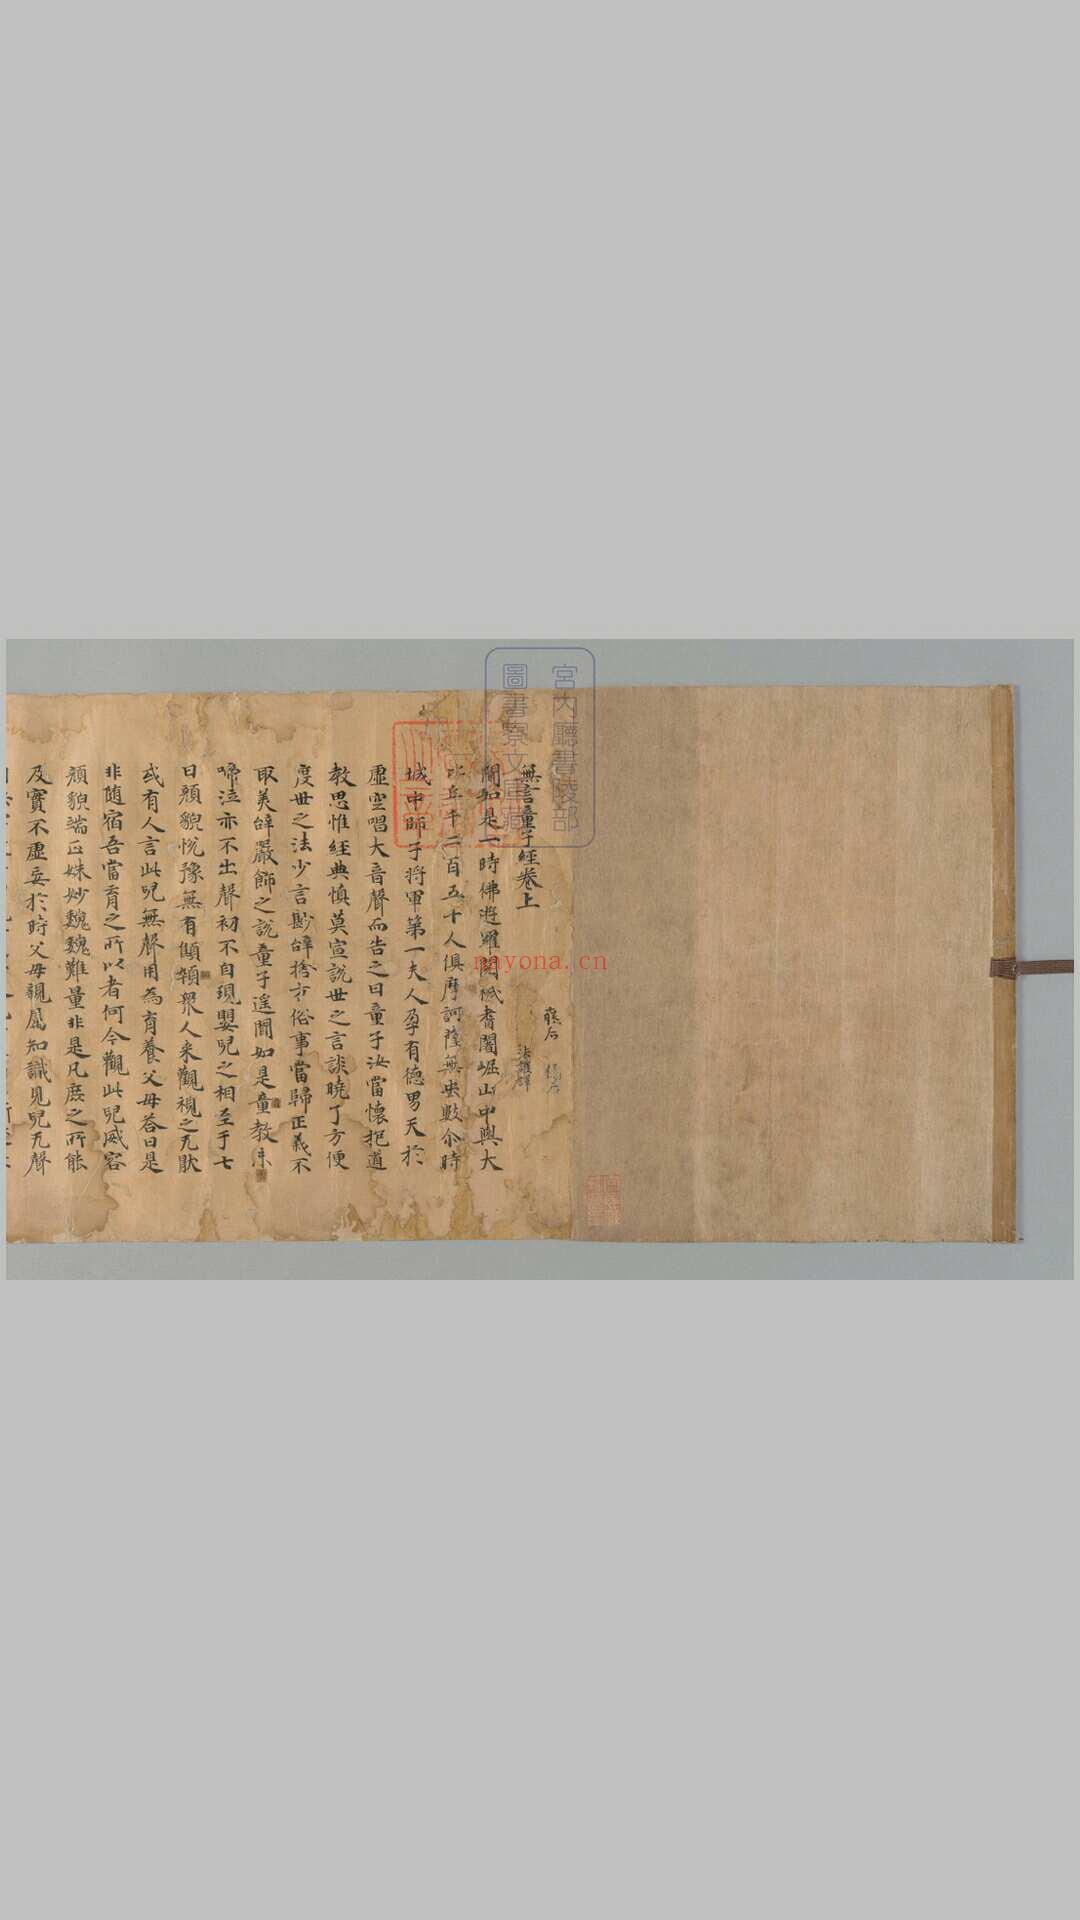 無言童子經卷上
法護譯
聞如是一時佛遊羅閱祇耆闍崛山中與大
比丘千二百五十人俱摩訶薩無央數尒時
城中師子將軍第一夫人孕有德男天於
虛空唱大音聲而告之曰童子汝當懷抱道
教思惟經典慎莫宣說世之言談曉了方便
度世之法少言尠辤捨方俗事當歸正義不
取美辤嚴飾之說童子遙聞如是童教未
啼泣亦不出聲初不自現嬰兒之相至于七
日顏貌悅豫無有顦顇衆人来觀視之无猒
或有人言此兒無聲用為育養父母荅曰是
非随宿吾當育之所以者何今觀此兒威容
顏貌端正姝妙巍巍難量非是凡庶之所能
及實不虛妄於時父母親屬知識見兒无聲
宮內廳書陵部
圖書寮文庫藏
nayona.cn